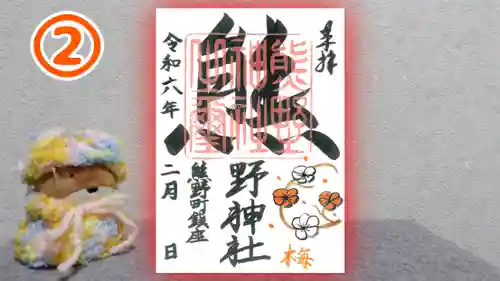 ②
奉拝
熊野神社
熊野町鎮座
令和六年
二月 日
梅